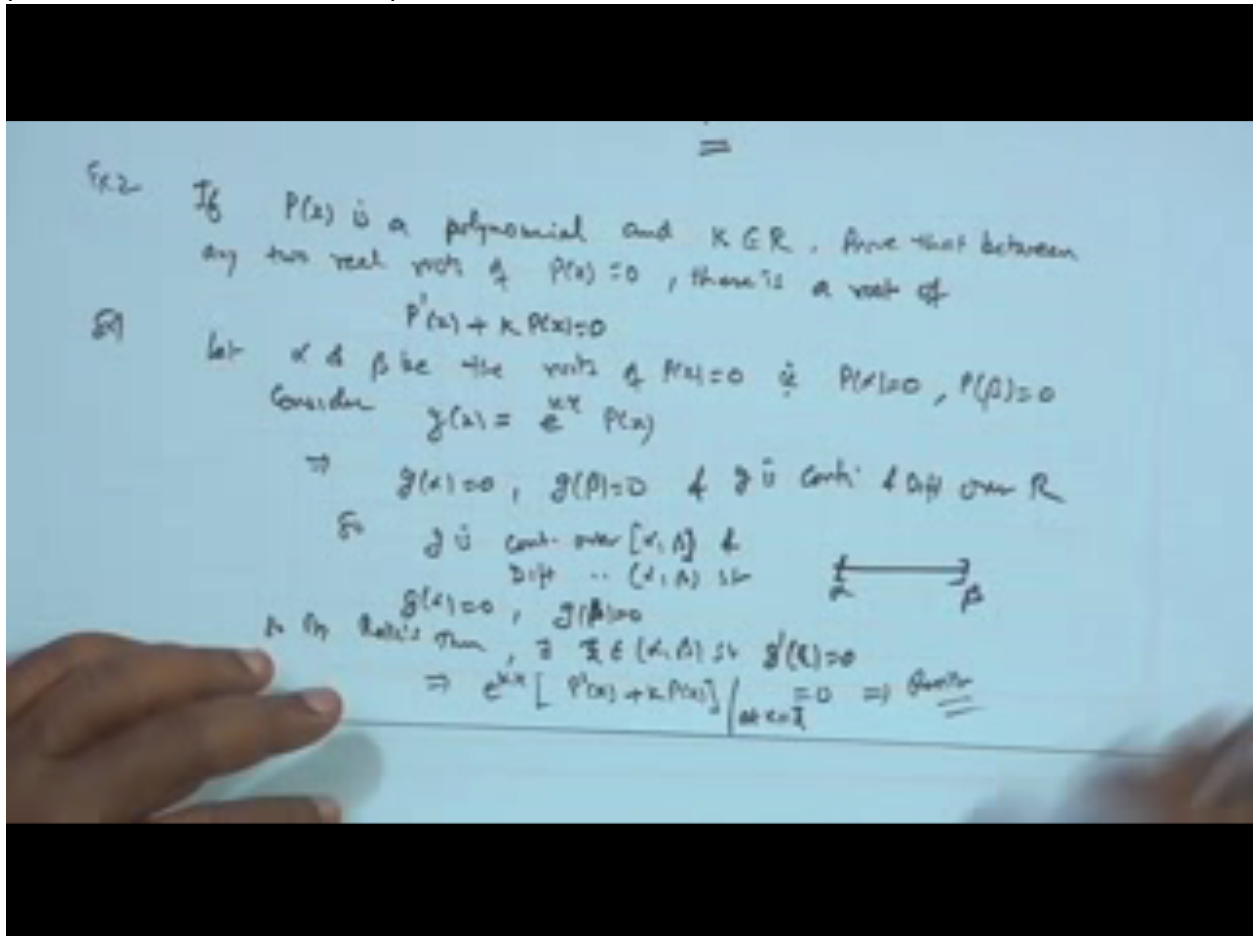 Ex 2 If P(x) is a polynomial and K ∈ R. Prove that between
any two real roots of P(x) = 0, there is a root of
P'(x) + K P(x) = 0
Sol Let α & β be the roots of P(x) = 0 ie P(α) = 0, P(β) = 0
Consider g(x) = e^{Kx} P(x)
⇒ g(α) = 0, g(β) = 0 & g is conti & Diff over R
So g is cont. over [α, β] &
Diff .. (α, β) st
g(α) = 0, g(β) = 0
α β
So by Rolle's Thm, ∃ ξ ∈ (α, β) st g'(ξ) = 0
⇒ e^{Kx} [P'(x) + K P(x)] | at x = ξ = 0 ⇒